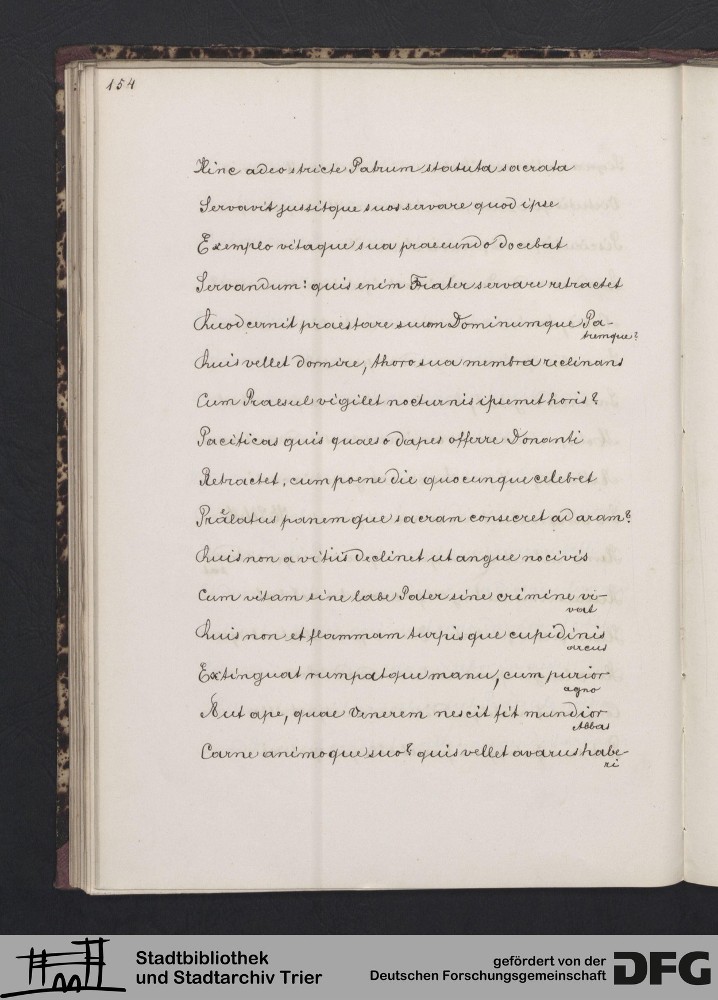 154
Hinc adeo stricte Patrum statuta sacrata
Servavit jussitque suos servare quod ipse
Exemplo vitaque sua praeeundo docebat
Servandum: quis enim Frater servare retractet
Quod cernit praestare suum Dominumque Pa-
tremque?
Quis vellet dormire, thoro sua membra reclinans
Cum Praesul vigilet nocturnis ipsemet horis?
Pacificas quis quaeso dapes offerre Donanti
Retractet, cum poene die quocunque celebret
Prälatus panemque sacram consecret ad aram?
Quis non a vitiis declinet ut angue nocivis
Cum vitam sine labe Pater sine crimine vi-
vat
Quis non et flammam turpisque cupidinis
arcus
Extinguat rumpatque manu, cum purior
agno
Aut ape, quae Venerem nescit fit mundior
Abbas
Carne animoque suo? quis vellet avarus habe-
ri
Stadtbibliothek
und Stadtarchiv Trier
gefördert von der
Deutschen Forschungsgemeinschaft
DFG